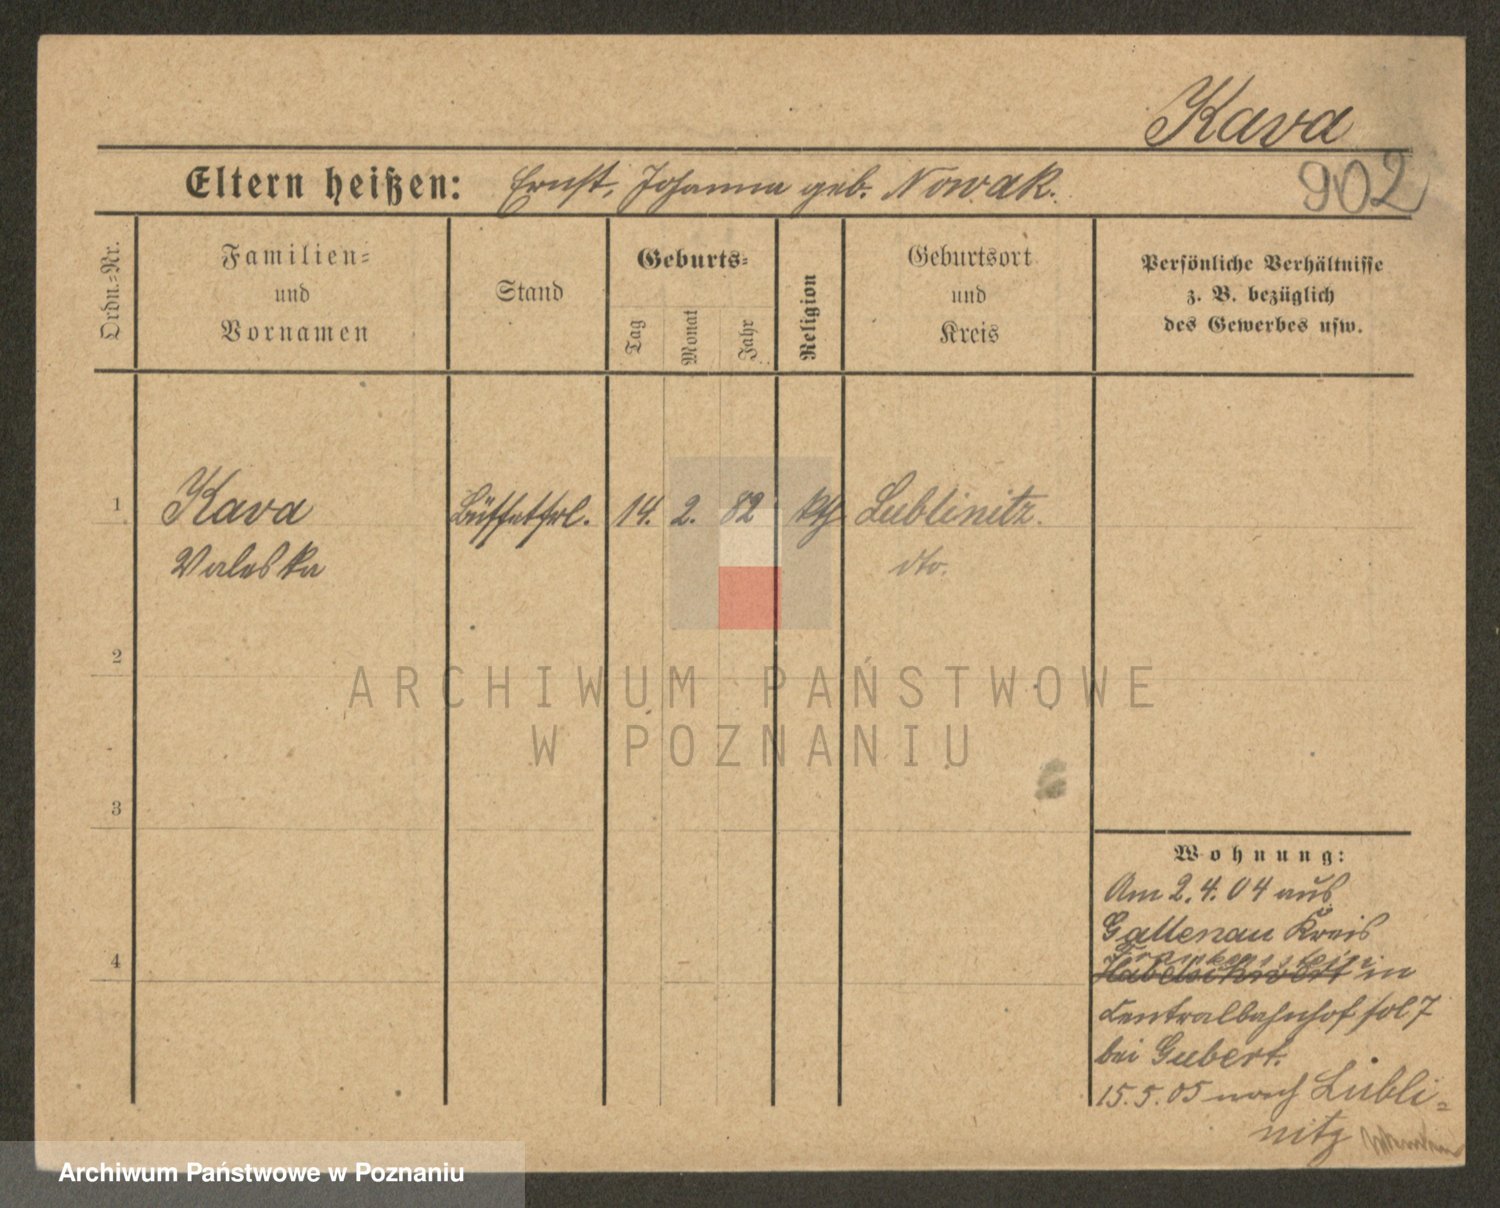 Kava
902
Eltern heißen: Ernst, Johanna geb. Nowak.
Ordn.-Nr.
Familien-
und
Vornamen
Stand
Geburts-
Tag
Monat
Jahr
Religion
Geburtsort
und
Kreis
Persönliche Verhältnisse
z. B. bezüglich
des Gewerbes usw.
1 Kava Büffetfrl. 14. 2. 82 kth Lublinitz.
Valeska dto.
2
ARCHIWUM PAŃSTWOWE
W POZNANIU
3
Wohnung:
Am 2.4.04 aus
Gallenau Kreis
Frankenstein
Habelschwert in
Centralbahnhof fol 7
bei Gubert.
4
15.5.05 nach Lubli-
nitz
Archiwum Państwowe w Poznaniu